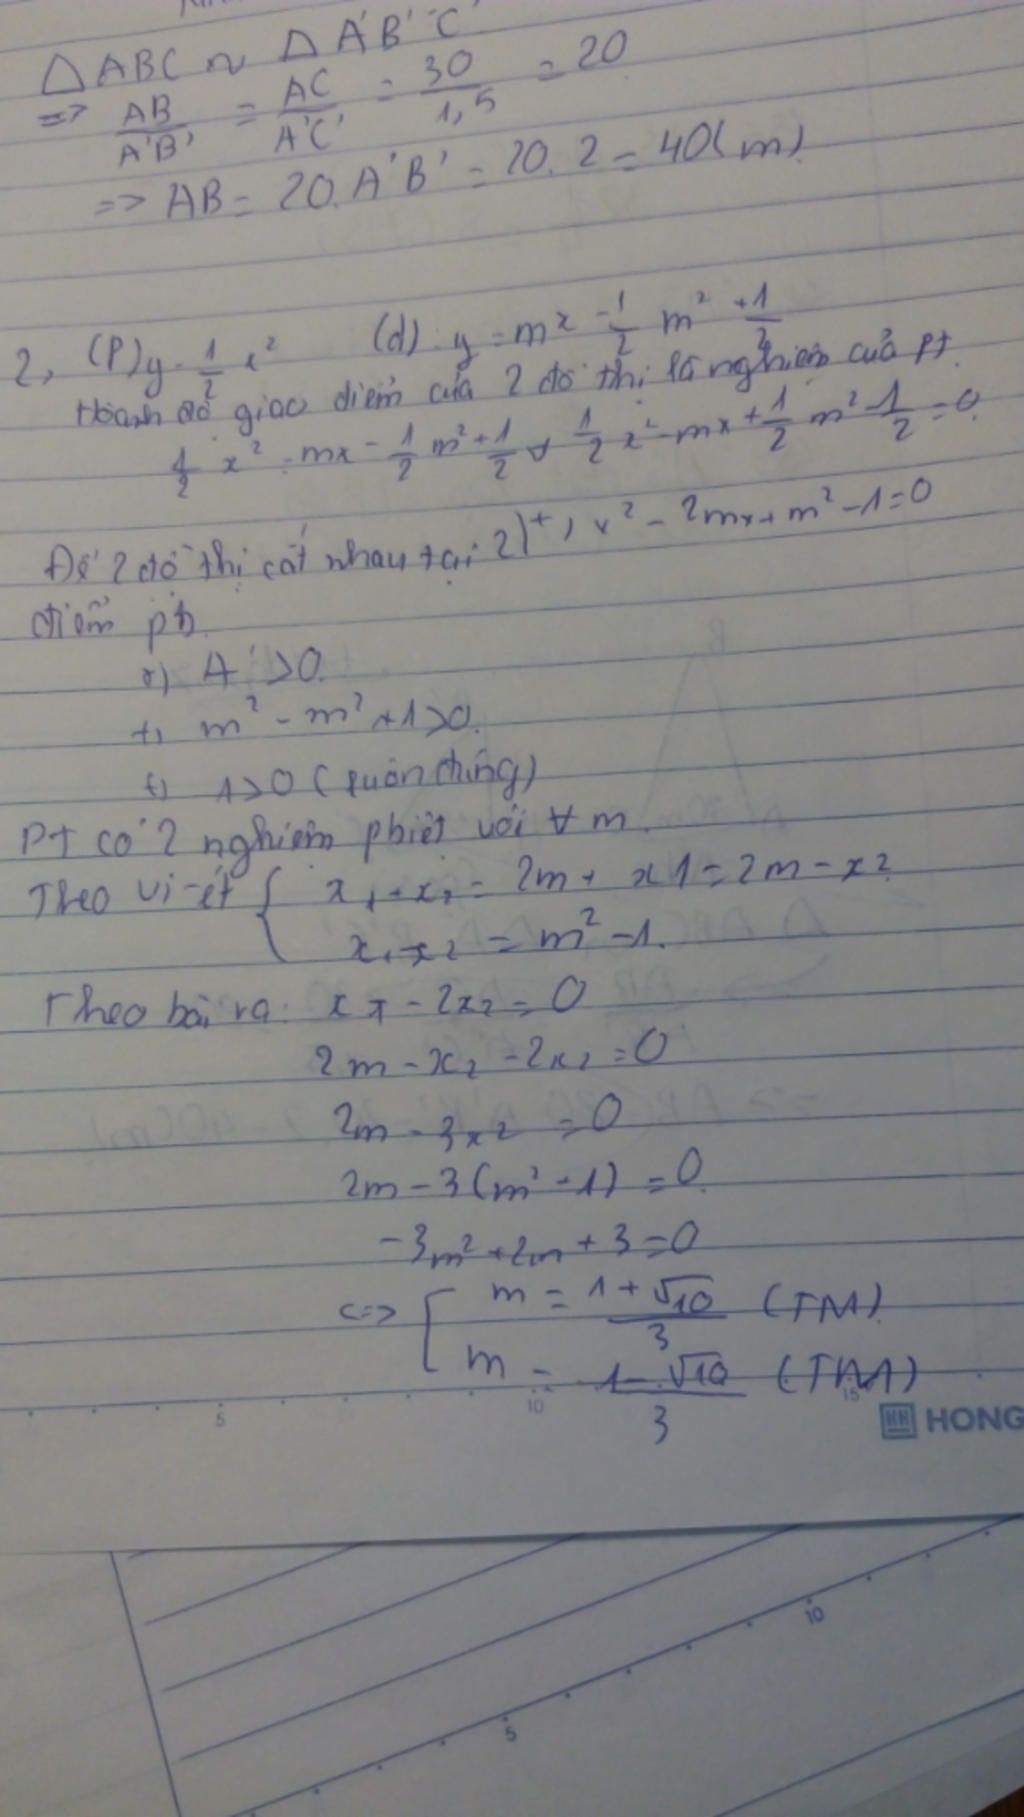 △ ABC ~ △ A'B'C'
=> AB/A'B' = AC/A'C' = 30/1,5 = 20
=> AB = 20. A'B' = 20. 2 = 40(m)
2, (P) y = 1/2 x² (d): y = mx - 1/2 m² + 1/2
Hoành độ giao điểm của 2 đồ thị là nghiệm của pt
1/2 x² = mx - 1/2 m² + 1/2 1/2 x² - mx + 1/2 m² - 1/2 = 0
x² - 2mx + m² - 1 = 0
Để 2 đồ thị cắt nhau tại 2
điểm pb
Δ' > 0
+) m² - m² + 1 > 0
1 > 0 (luôn đúng)
Pt có 2 nghiệm pbiệt với ∀ m
Theo vi-ét { x1 + x2 = 2m + x1 = 2m - x2
x1 x2 = m² - 1.
Theo bài ra: x1 - 2x2 = 0
2m - x2 - 2x2 = 0
2m - 3x2 = 0
2m - 3(m² - 1) = 0
-3m² + 2m + 3 = 0
<=> [ m = 1 + √10 / 3 (TM)
m = 1 - √10 / 3 (TM)
5 10 15
HONG
10
5